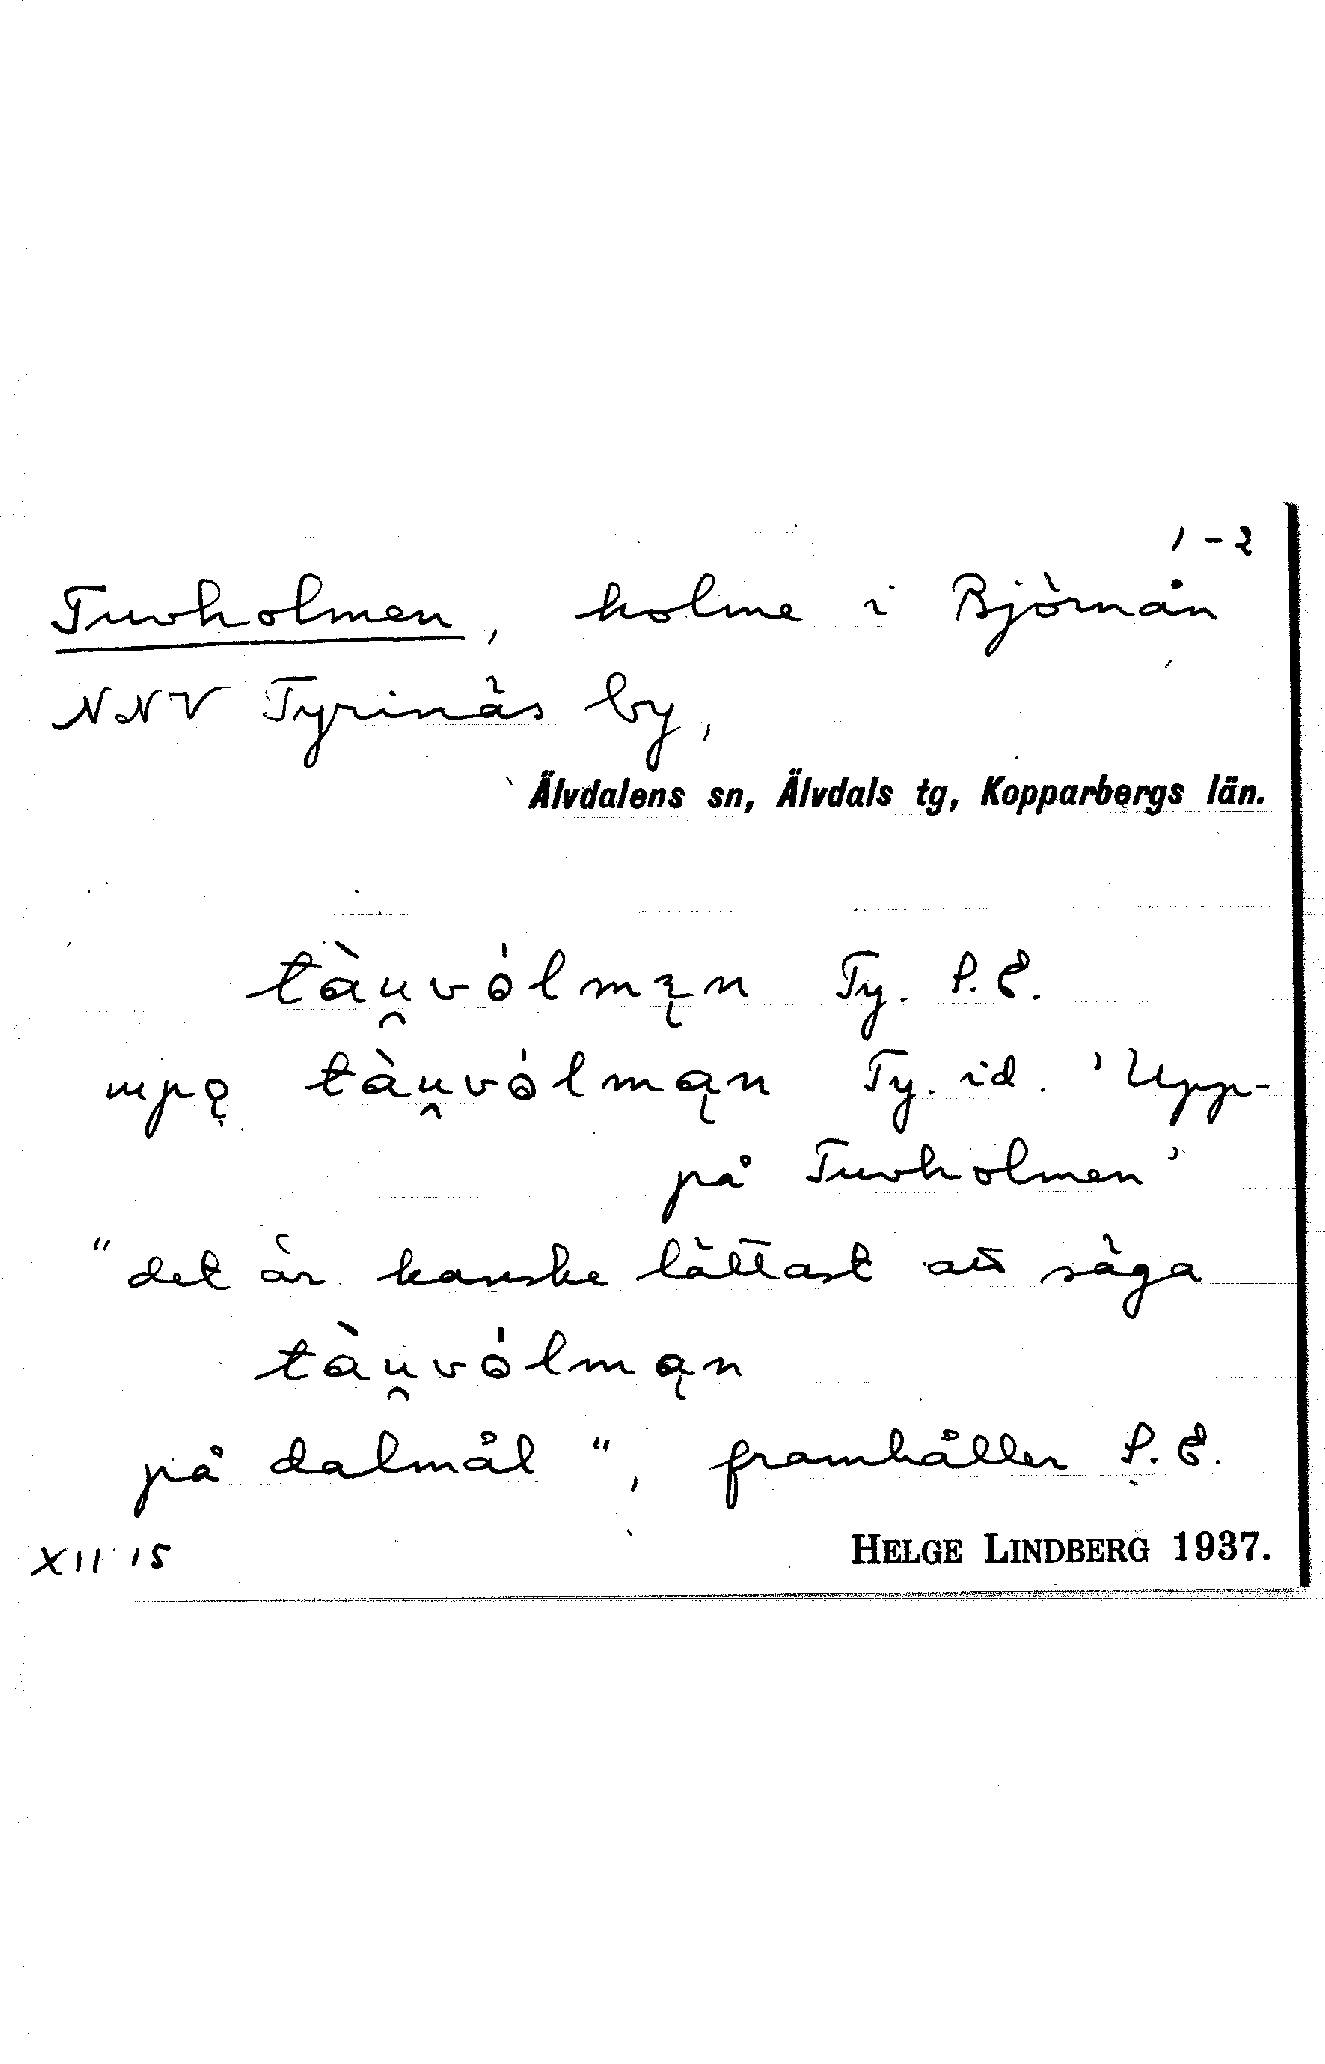 1-2
Tuvholmen, holme i Björnån
NNV Tyrinäs by,
Älvdalens sn, Älvdals tg, Kopparbergs län.
tàu̯vólmęn Ty. P.E.
tàu̯vólmąn Ty. id. 'Upp-
på Tuvholmen'
"det är kanske lättast att säga
tàu̯vólmąn
på dalmål", framhåller P.E.
XII 15
HELGE LINDBERG 1937.